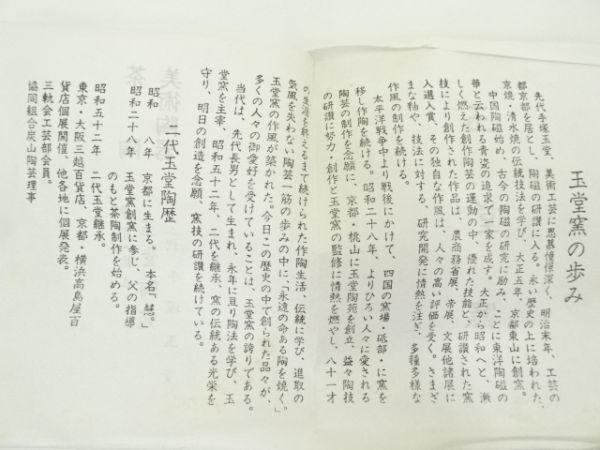 玉堂窯の歩み
先代手塚玉堂、美術工芸に思慕憧憬深く、明治末年、工芸の
都京都を居とし、陶磁の研讃に入る。永い歴史の上に培われた、
京焼・清水焼の伝統技法を学び、大正五年、京都東山に創窯。
中国陶磁始め、古今の陶磁の研究に励み、ことに東洋陶磁の
華と云われる青瓷の追求で一家を成す。大正から昭和へと、激
しく燃えた創作陶芸の運動の中、優れた技能と、研讃された窯
技により創作された作品は、農商務省展、帝展、文展他諸展に
入選入賞、その独自な作風は、人々の高い評価を受く。さまざ
まな釉や、技法に対する、研究開発に情熱を注ぎ、多種多様な
作風の制作を続ける。
太平洋戦争中より戦後にかけて、四国の窯場・砥部・に窯を
移し作陶を続ける。昭和二十八年、よりひろい人々に愛される
陶芸の制作を念願に、京都・桃山に玉堂陶苑を創立、益々陶技
の研讃に努力・創作と玉堂窯の監修に情熱を燃やし、八十一才
の生涯を終えるまで続けられた作陶生活、伝統に学び、進取の
気風を失わない陶芸一筋の歩みの中に「永遠の命ある陶を焼く」
玉堂窯の作風が築かれた。今日この歴史の中で創られた品々が、
多くの人々の御愛好を受けていることは、玉堂窯の誇りである。
当代は、先代長男として生まれ、永年に亘り陶法を学び、玉
堂窯を主宰、昭和五十二年、二代を継承、窯の伝統ある光栄を
守り、明日の創造を念願、窯技の研讃を続けている。
二代玉堂陶歴
昭和 八年 京都に生まる。本名「慧。」
昭和二十八年 玉堂窯創窯に参じ、父の指導
のもと茶陶制作を始める。
昭和五十二年 二代玉堂継承。
東京・大阪三越百貨店、京都・横浜高島屋百
貨店個展開催、他各地に個展発表。
三軌会工芸部会員。
協同組合炭山陶芸理事